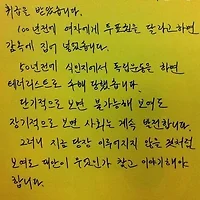 취급을 받았습니다.
100년전에 여자에게 투표권을 달라고하면
감옥에 집어 넣었습니다.
50년전에 식민지에서 독립운동을 하면
테러리스트로 수배 당했습니다.
단기적으로 보면 불가능해 보여도
장기적으로 보면 사회는 계속 발전합니다.
그러니 지금 당장 이루어지지 않을 것처럼
보여도 대안이 무엇인가 찾고 이야기해야
합니다.